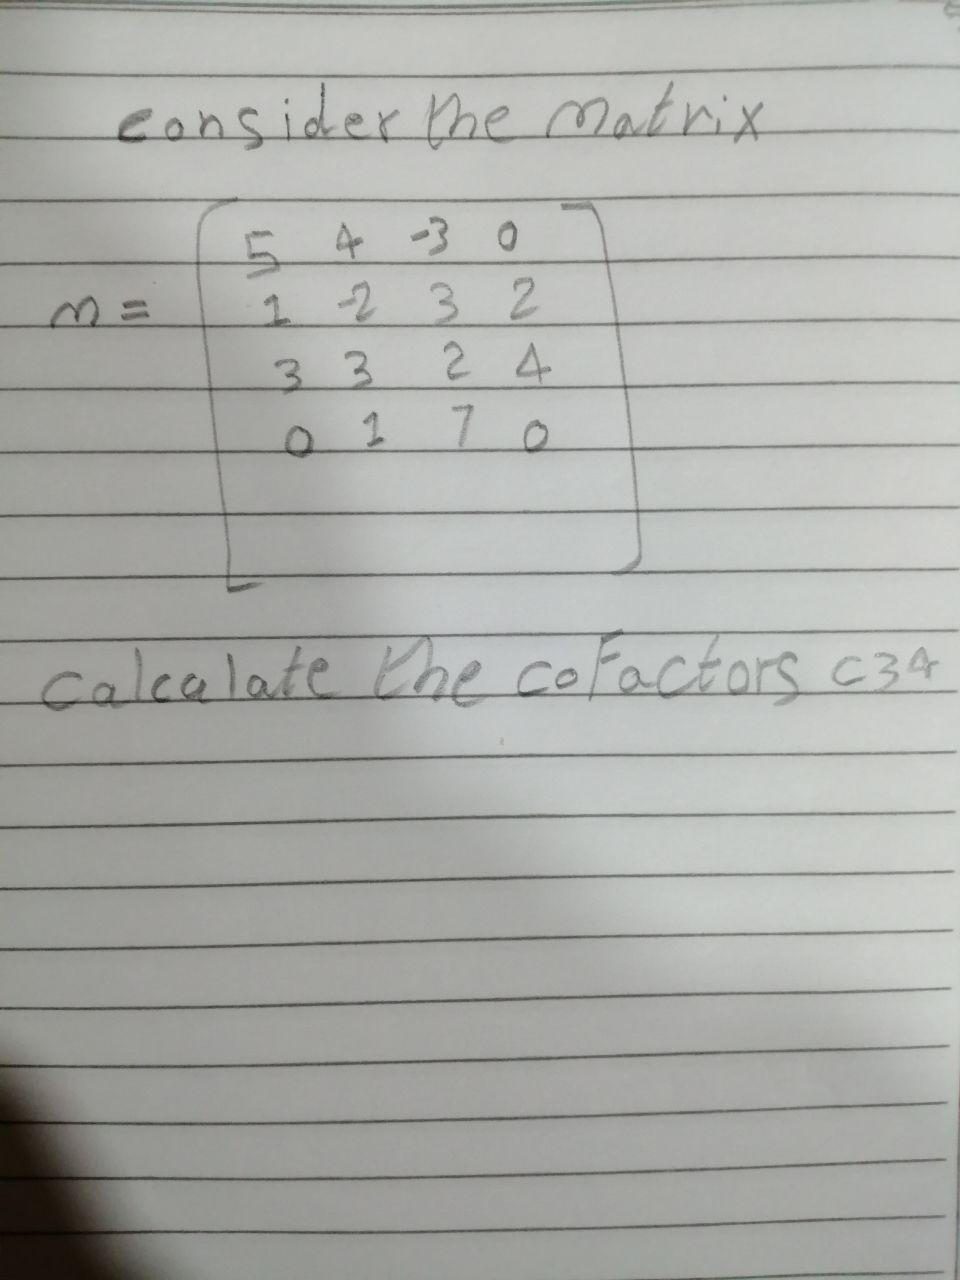 consider the matrix
5 4 -3 0
m = 1 -2 3 2
3 3 2 4
0 1 7 0
calcalate the coFactors c34